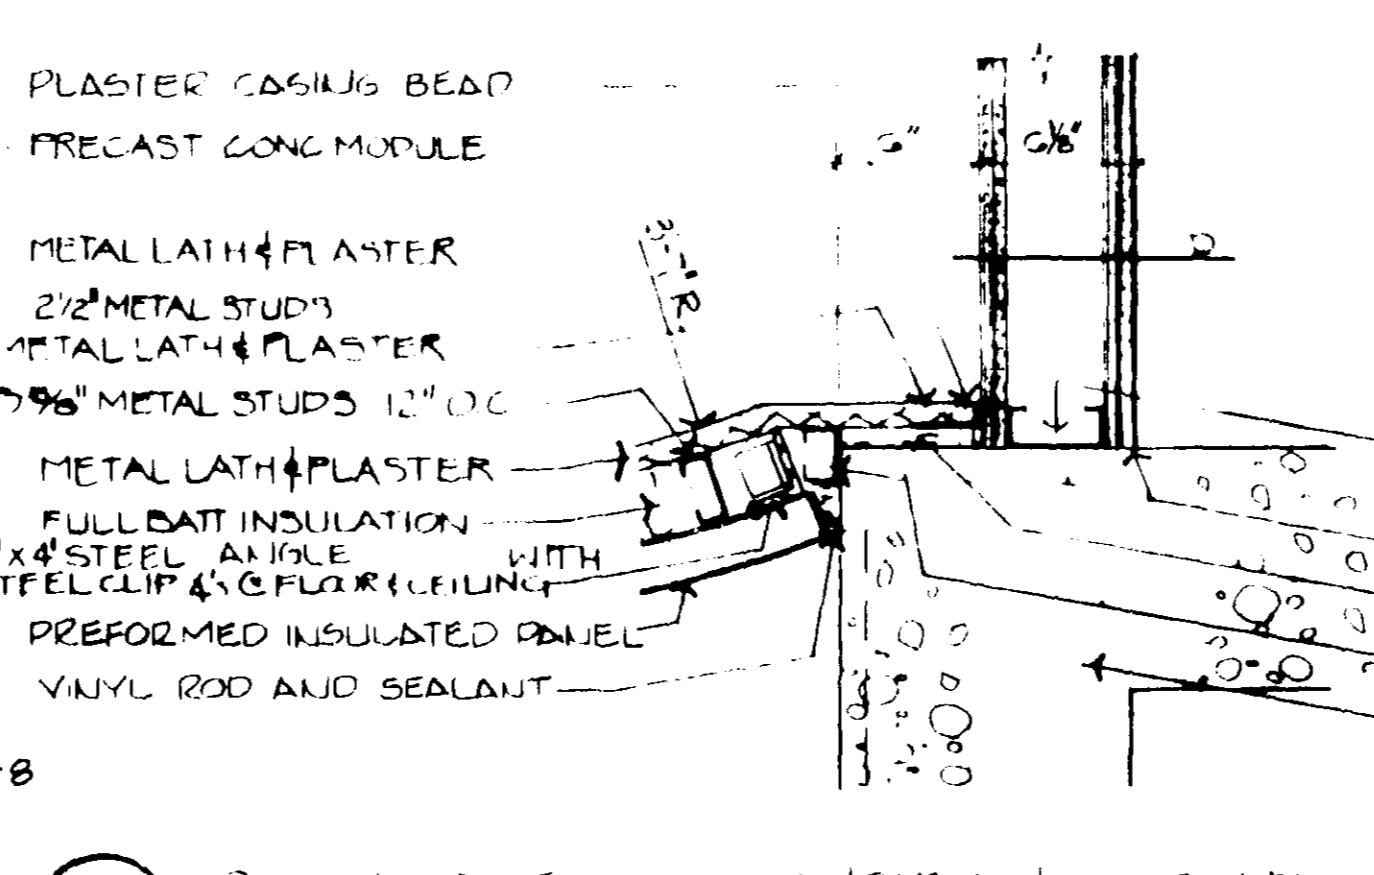 PLASTER CASING BEAD
PRECAST CONC MODULE
6"
6⅛"
METAL LATH & PLASTER
2½" METAL STUDS
METAL LATH & PLASTER
3⅝" METAL STUDS 12" O.C
METAL LATH & PLASTER
FULL BATT INSULATION
x 4" STEEL ANGLE WITH
STEEL CLIP 4's @ FLOOR & CEILING
PREFORMED INSULATED PANEL
VINYL ROD AND SEALANT
8